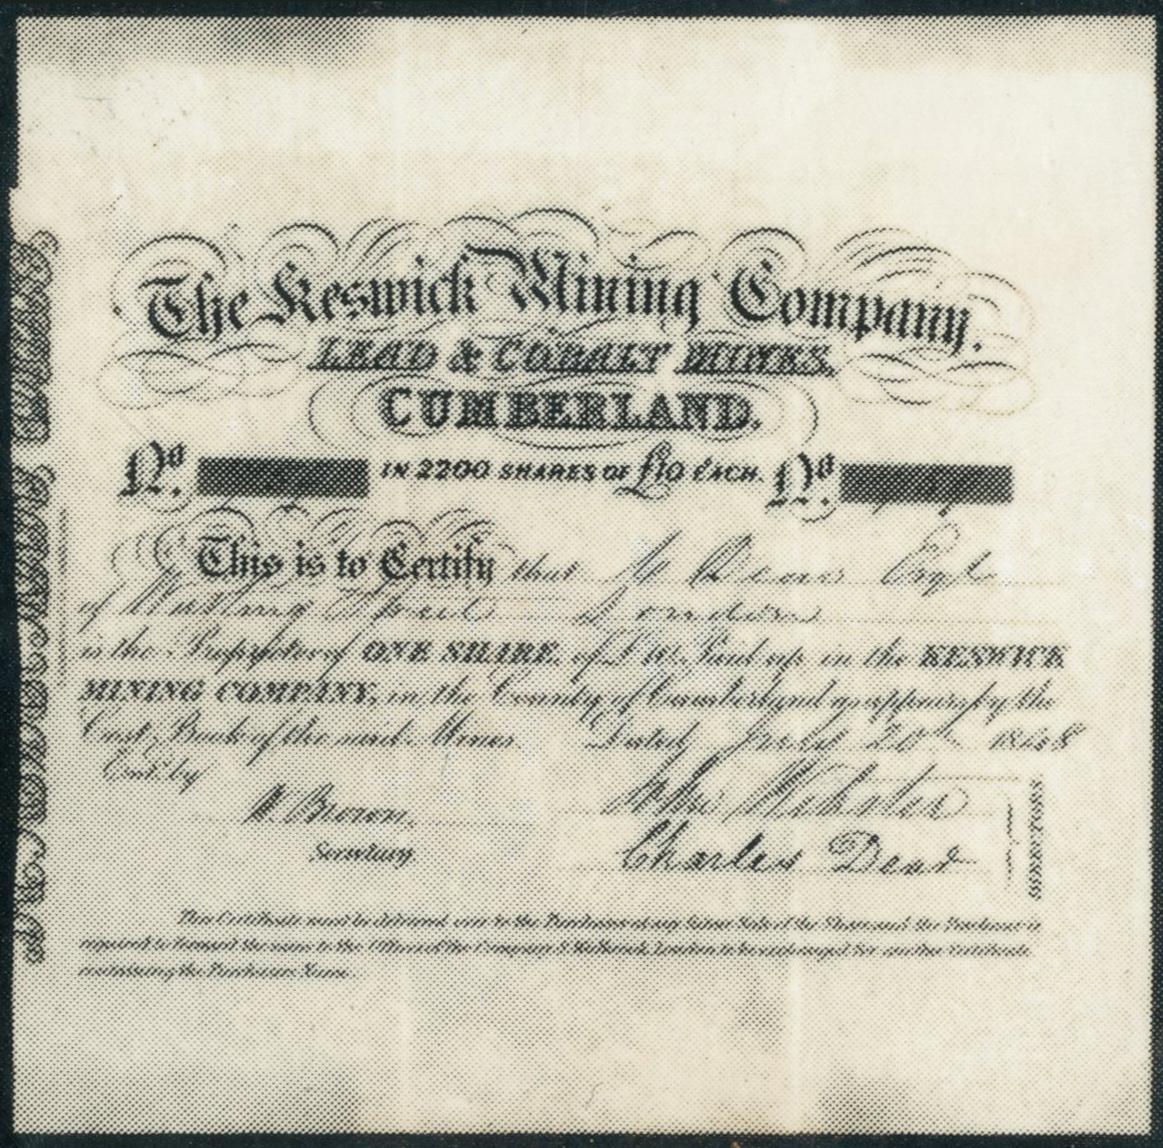 The Keswick Mining Company.
LEAD & COBALT MINES.
CUMBERLAND.
No. IN 2200 SHARES OF £10 EACH. No.
This is to Certify that Esqr
of Watling Street London
is the Proprietor of ONE SHARE, of £10. Paid up in the KESWICK
MINING COMPANY, in the County of Cumberland as appears by the
Cost Book of the said Mines Dated July 20th 1848
Entd. by
W. Brown. Webster
Secretary Charles Dear
DIRECTORS
This Certificate must be delivered over to the Purchaser at any future Sale of the Share and the Purchaser is
required to forward the same to the Office of the Company London to be exchanged for another Certificate
containing the Purchasers Name.